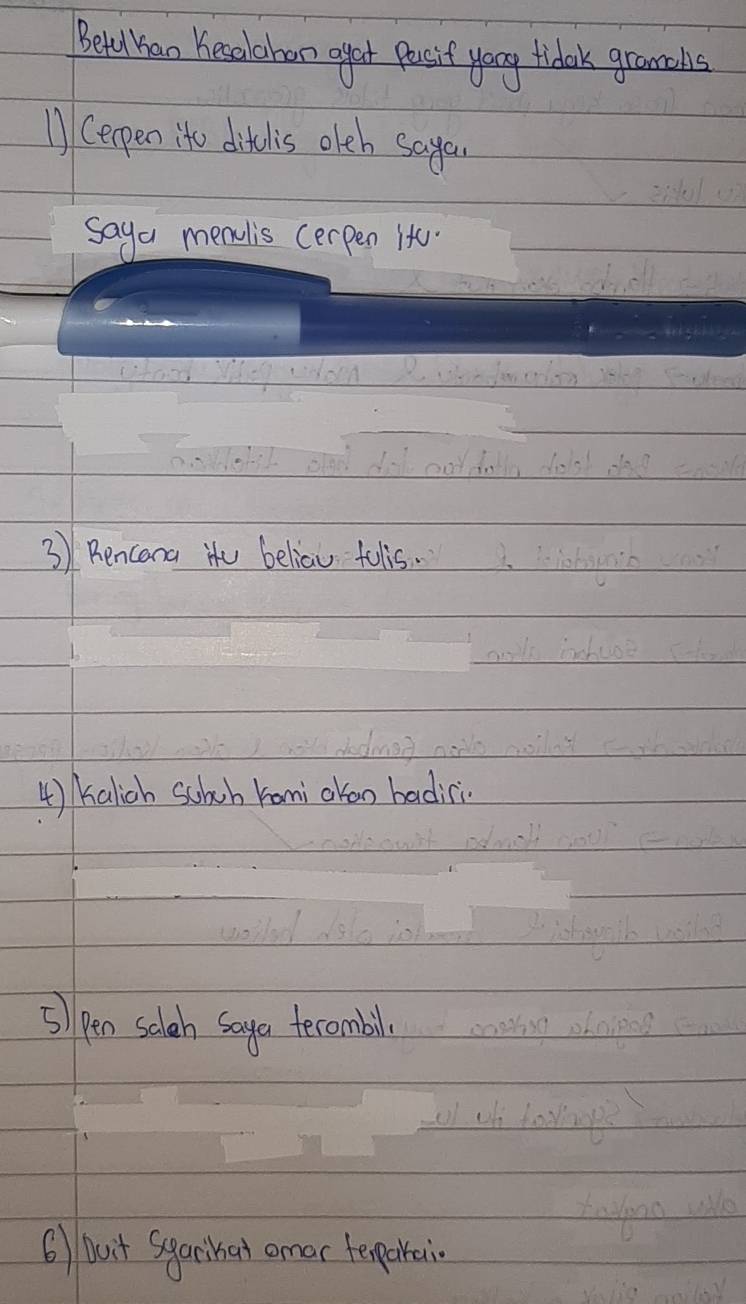 Betulkan Kesalahan ayat pasif yang tidak gramatis
1) Cerpen itu ditulis oleh saya.
Saya menulis cerpen itu.
3) Rencana itu beliau tulis.
4) Kuliah subuh kami akan hadiri.
5) Pen saleh saya terambil.
6) Duit Syarikat omar terpakai.